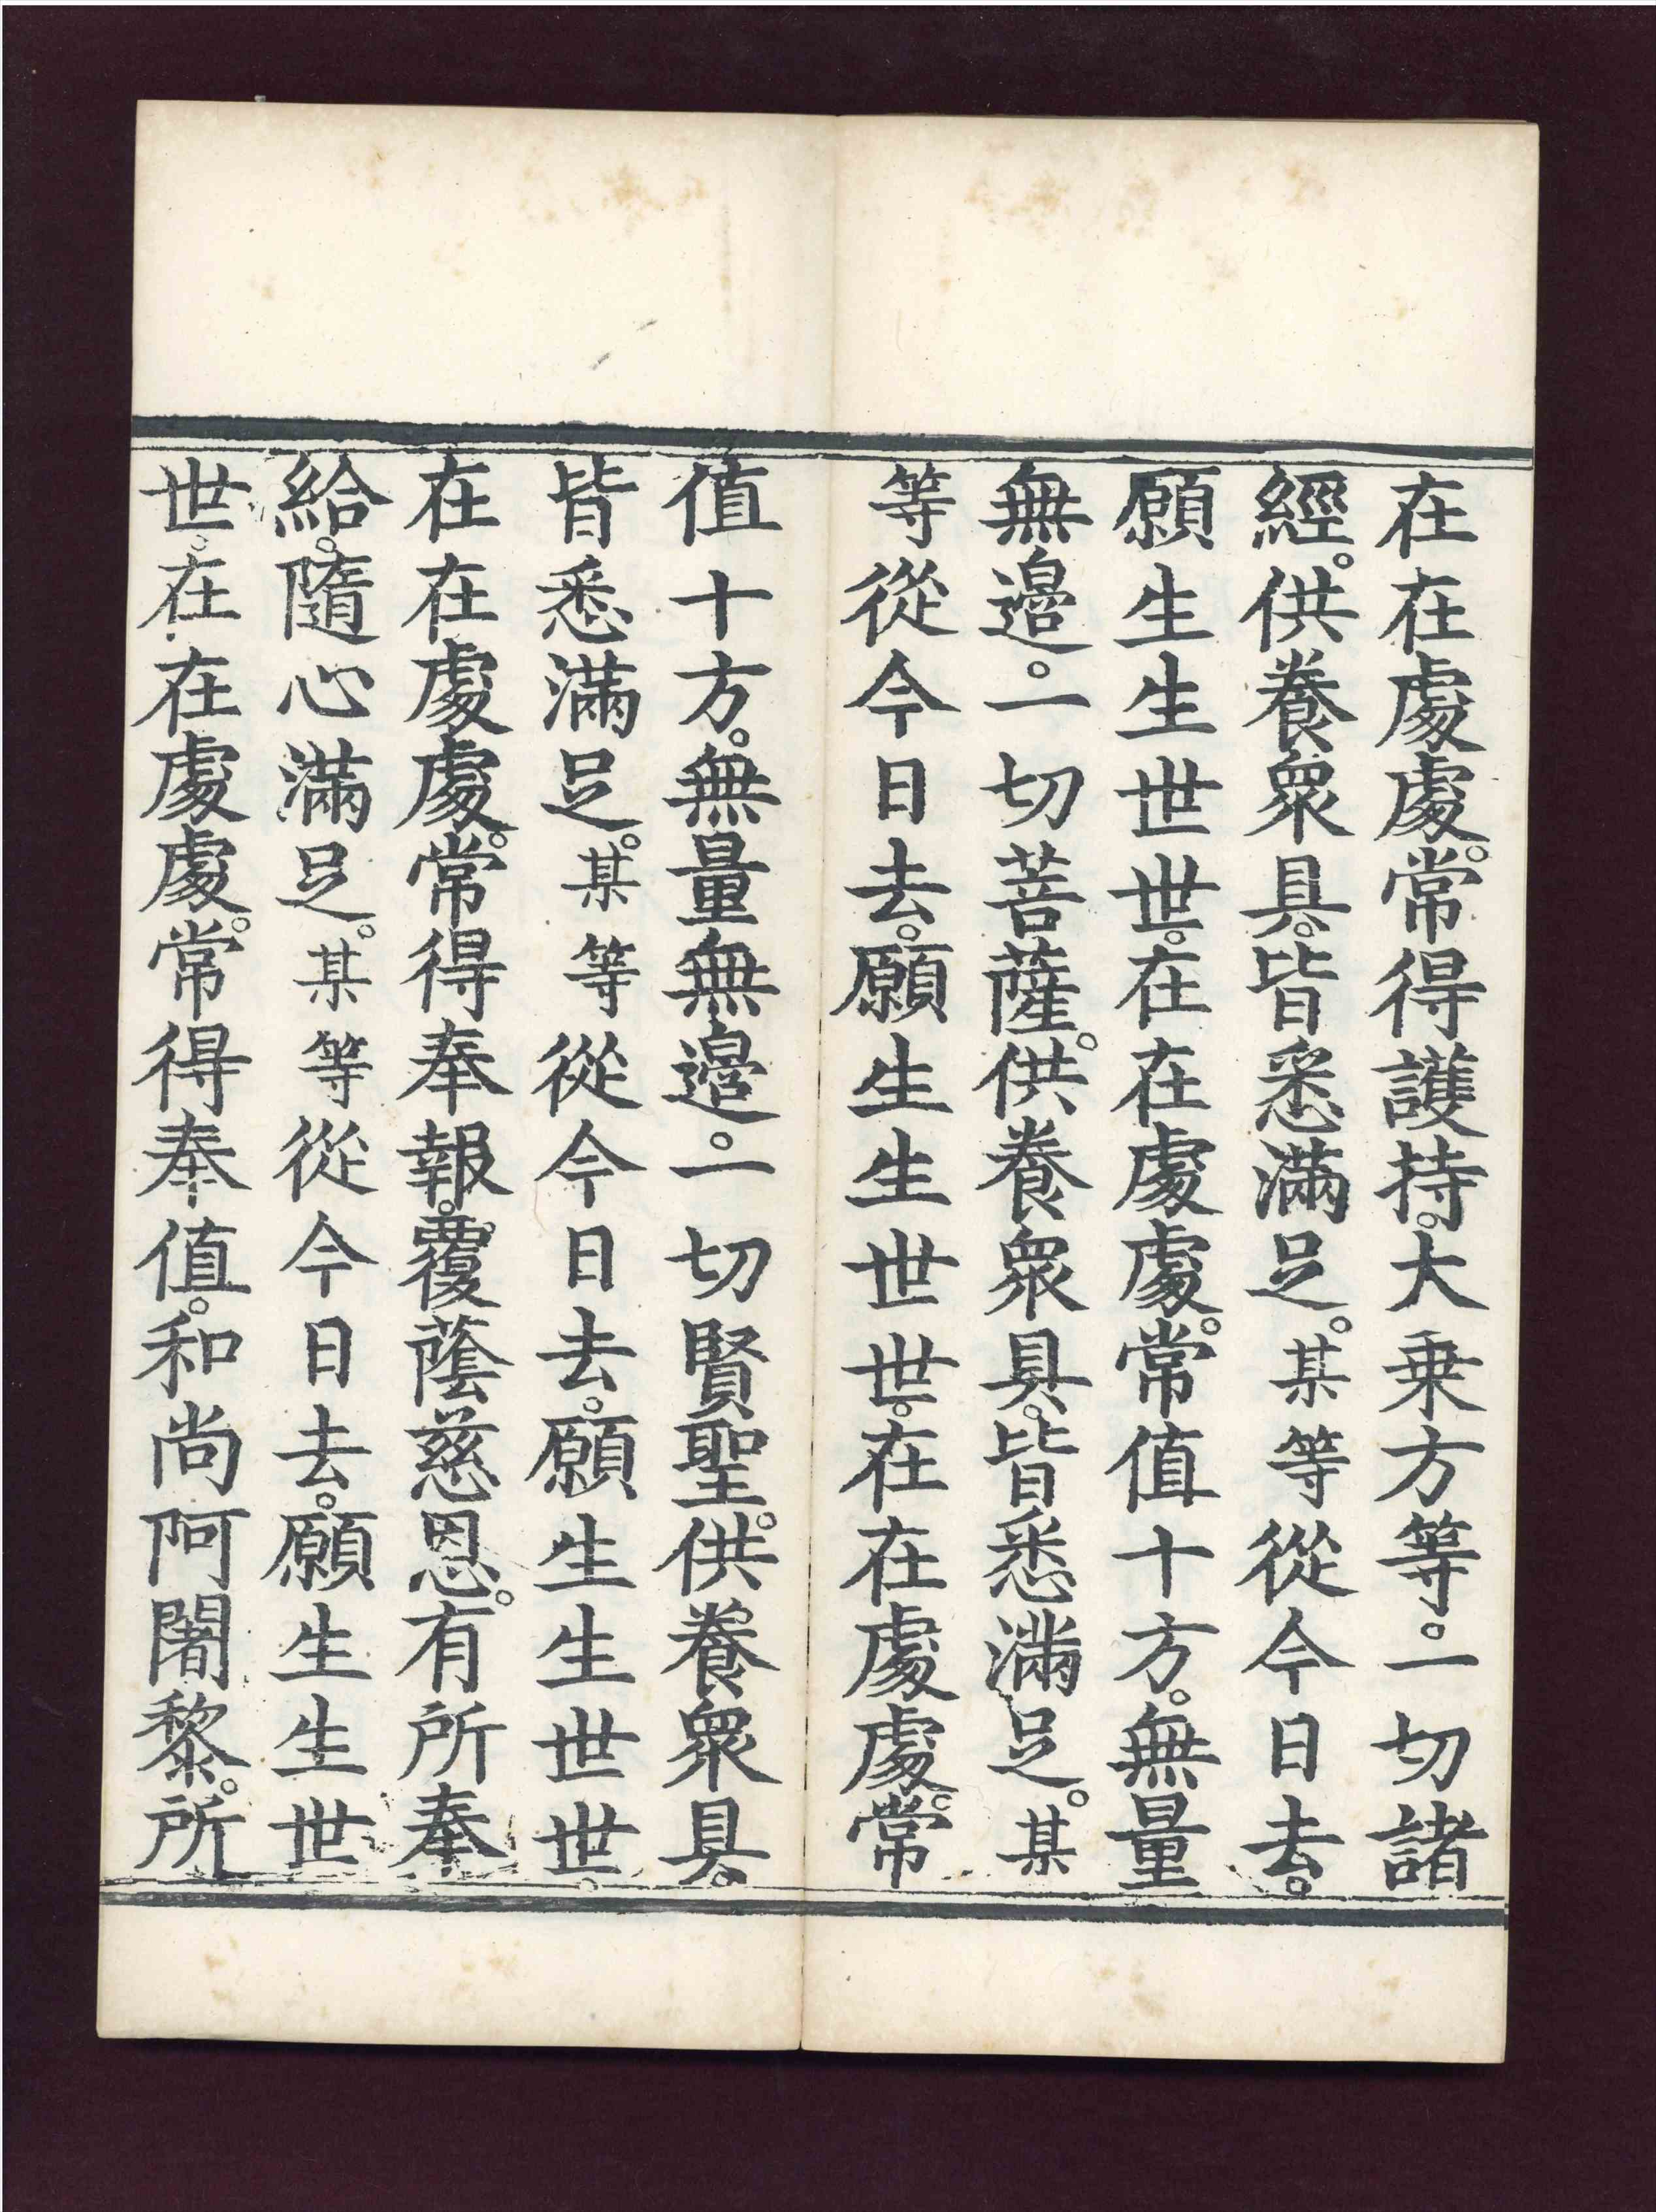 在在處處。常得護持。大乗方等。一切諸
經。供養衆具。皆悉滿足。某等從今日去。
願生生世世。在在處處。常值十方。無量
無邊。一切菩薩。供養衆具。皆悉滿足。某
等從今日去。願生生世世。在在處處。常
值十方。無量無邊。一切賢聖。供養衆具。
皆悉滿足。某等從今日去。願生生世世。
在在處處。常得奉報。覆蔭慈恩。有所奉
給。隨心滿足。某等從今日去。願生生世
世。在在處處。常得奉值。和尚阿闍黎。所